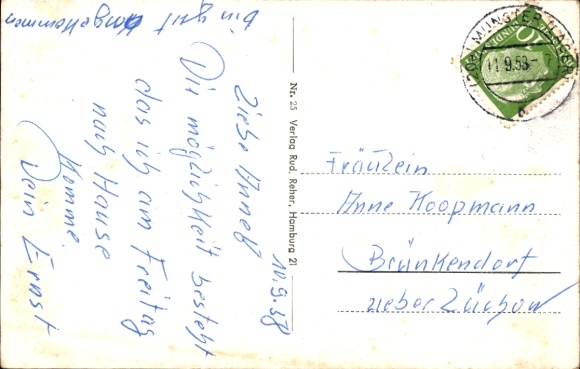 bin gut
angekommen
10.9.58
Liebe Anne!
Die möglichkeit besteht
das ich am Freitag
nach Hause
komme.
Dein Ernst
Nr. 25 Verlag Rud. Reher, Hamburg 21
MUNSTER-LAGER
11.9.58
10
Fräulein
Anne Koopmann
Brünkendorf
ueber Lüchow